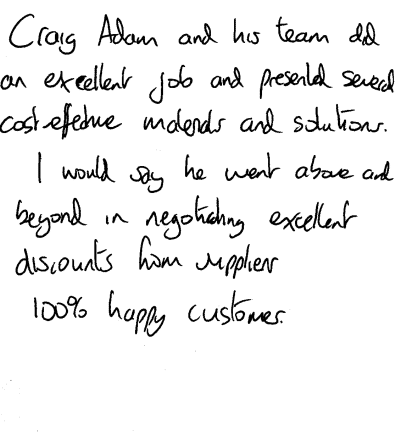 Craig Adam and his team did
an excellent job and presented several
cost-effective materials and solutions.
I would say he went above and
beyond in negotiating excellent
discounts from suppliers
100% happy customer.